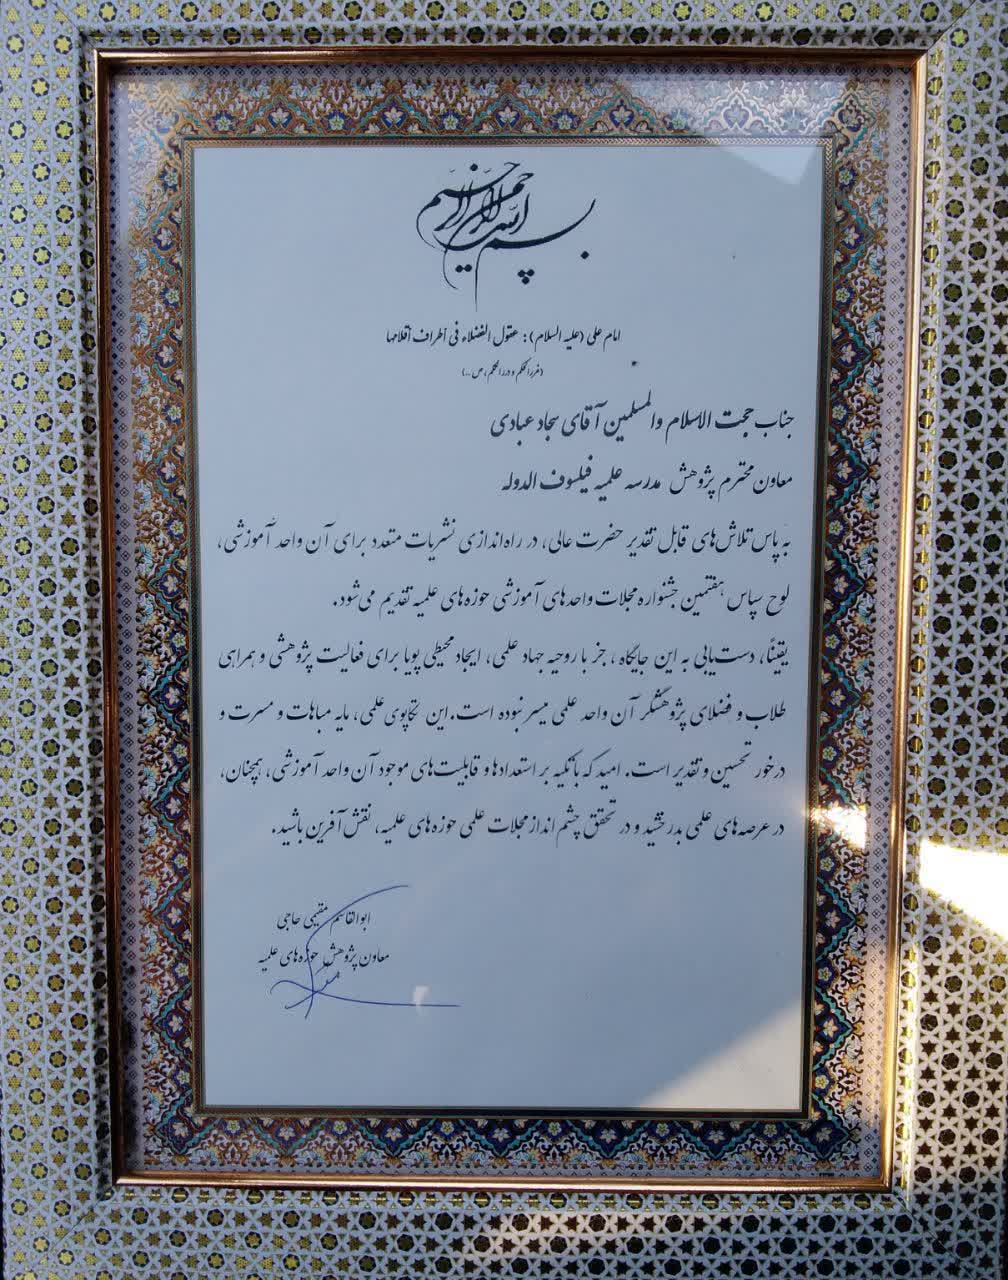 بسم الله الرحمن الرحیم
امام علی (علیه السلام): عقول الفضلاء فی أطراف أقلامها
(غررالحکم و دررالحکم، ص
جناب حجت الاسلام والمسلمین آقای سجاد عبادی
معاون محترم پژوهش مدرسه علمیه فیلسوف الدوله
به پاس تلاش‌های قابل تقدیر حضرت عالی، در راه‌اندازی نشریات متعدد برای آن واحد آموزشی،
لوح سپاس هفتمین جشنواره مجلات واحدهای آموزشی حوزه‌های علمیه تقدیم می‌شود.
یقیناً، دست‌یابی به این جایگاه، جز با روحیه جهاد علمی، ایجاد محیطی پویا برای فعالیت پژوهشی و همراهی
طلاب و فضلای پژوهشگر آن واحد علمی میسر نبوده است. این تکاپوی علمی، مایه مباهات و مسرت و
درخور تحسین و تقدیر است. امید که با تکیه بر استعدادها و قابلیت‌های موجود آن واحد آموزشی، همچنان،
در عرصه‌های علمی بدرخشید و در تحقق چشم انداز مجلات علمی حوزه‌های علمیه، نقش آفرین باشید.
ابوالقاسم مقیمی حاجی
معاون پژوهش حوزه‌های علمیه